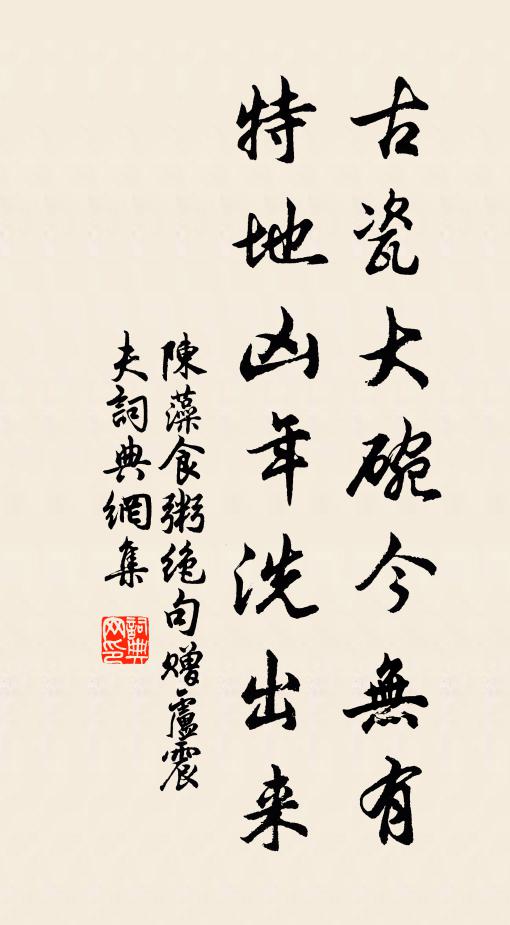 古瓷大碗今無有
特地凶年洗出来
陳藻食粥絶句贈盧震
夫詞典網集
詞典网印